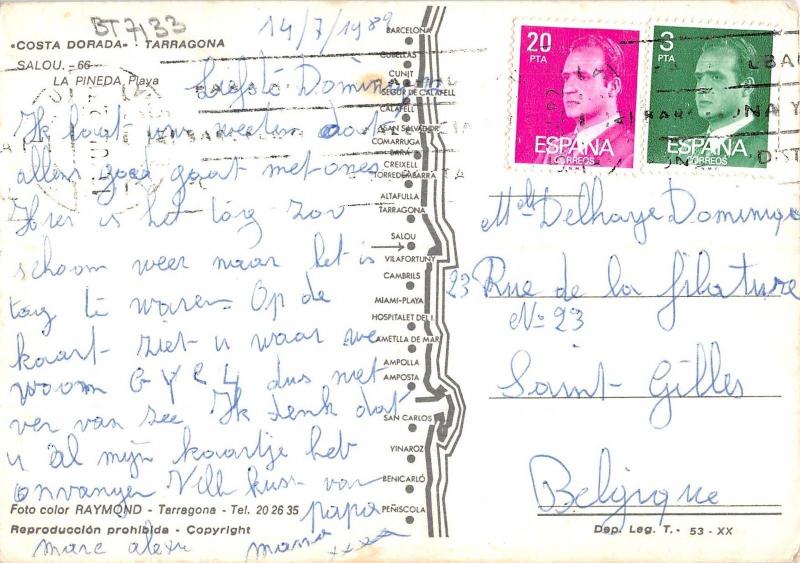 BT7133
14/7/1989
«COSTA DORADA» TARRAGONA
SALOU. - 66
LA PINEDA, Playa
Ik laat u weten dat
alles goed gaat met ons
Hier is het tog zoo
schoom weer maar het is
tog te waren. Op de
kaart ziet u waar we
woom dus niet
ver van see Ik denk dat
u al mijn kaartje heb
onvangen Vell kuss van
papa
marc alexi mama xxxx
Foto color RAYMOND - Tarragona - Tel. 20 26 35
Reproducción prohibida - Copyright
BARCELONA
CUBELLAS
CUNIT
SEGUR DE CALAFELL
CALAFELL
SAN SALVADOR
COMARRUGA
BARÁ
CREIXELL
TORREDEMBARRA
ALTAFULLA
TARRAGONA
SALOU
VILAFORTUNY
CAMBRILS
MIAMI-PLAYA
HOSPITALET DEL I.
AMETLLA DE MAR
AMPOLLA
AMPOSTA
SAN CARLOS
VINAROZ
BENICARLÓ
PEÑISCOLA
20 PTA
ESPAÑA
CORREOS
3 PTA
ESPAÑA
CORREOS
Delhaye Dominique
23 Rue de la filature
No 23
Saint-Gilles
Belgique
Dep. Leg. T. - 53 - XX